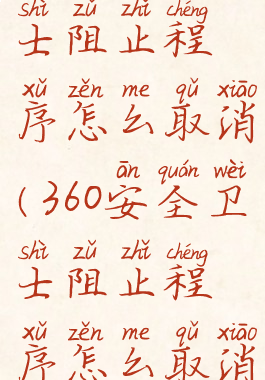 shì zǔ zhǐ chéng
士阻止程
xǔ zěn me qǔ xiāo
序怎么取消
ān quán wèi
（360安全卫
shì zǔ zhǐ chéng
士阻止程
xǔ zěn me qǔ xiāo
序怎么取消